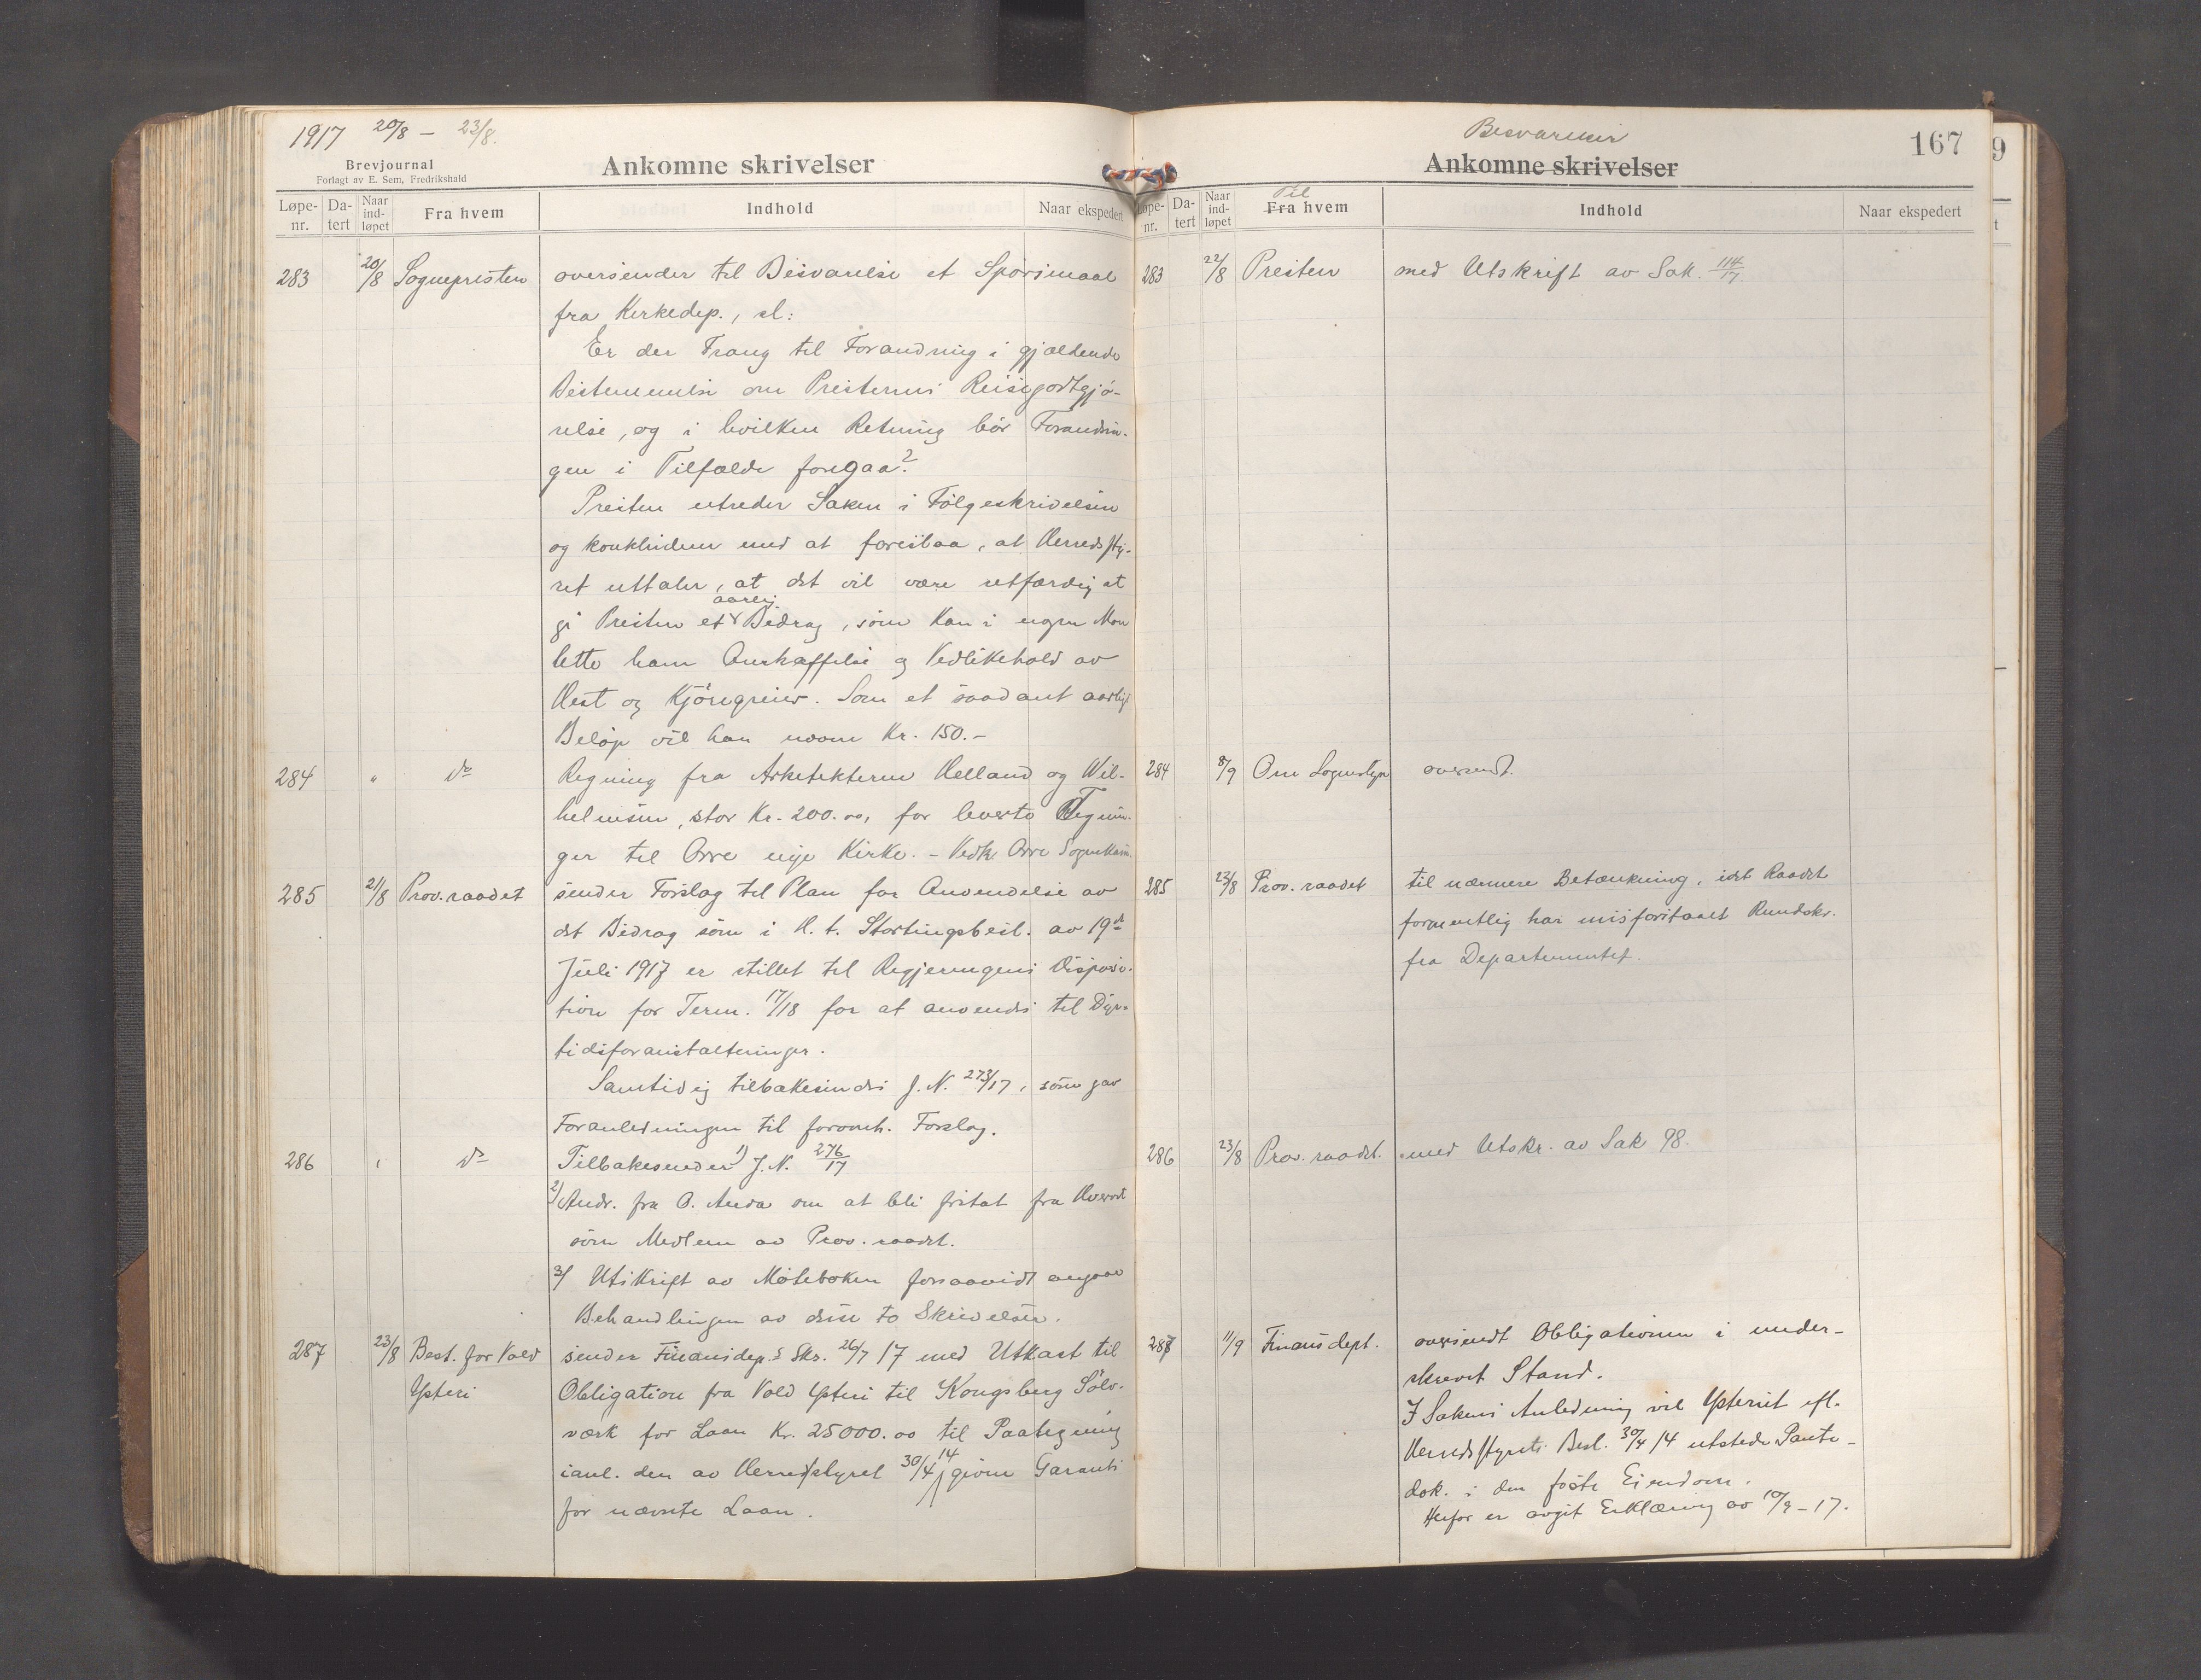 1917 20/8 – 23/8.
Brevjournal
Forlagt av E. Sem, Fredrikshald
Ankomne skrivelser
Løpe-nr. Da-tert Naar ind-løpet Fra hvem Indhold Naar ekspedert
283 20/8 Sognepresten oversender til Besvarelse et Spörsmaal
fra Kirkedep., sl:
Er der Trang til Forandring i gjældende
Bestemmelse om Presternes Reisegodtgjö-
relse, og i hvilken Retning bör Forandrin-
gen i Tilfælde foregaa?
Presten utreder Saken i Fölgeskrivelsen
og konkluderer med at foreslaa, at Herredssty-
ret uttaler, at det vil være retfærdig at
gi Presten et aarlig Bidrag, som kan i nogen Mon
lette ham Anskaffelse og Vedlikehold av
Hest og Kjöregreier. Som et saadant aarlig
Belöp vil han nævne Kr. 150.–
284 " do Regning fra Arkitekterne Helland og Wil-
helmsen, stor Kr. 200.00, for leverte Tegnin-
ger til Orre nye Kirke. – Vedk. Orre Sognekom.
285 21/8 Prov.raadet sender Forslag til Plan for Anvendelse av
det Bidrag som i H. t. Stortingsbesl. av 19de
Juli 1917 er stillet til Regjeringens Disposi-
tion for Term. 17/18 for at anvendes til Dyr-
tidsforanstaltninger.
Samtidig tilbakesendes J.N. 273/17, som gav
Foranledningen til forannt. Forslag.
286 " do Tilbakesender 1) J.N. 276/17
2) Andr. fra O. Anda om at bli fritat fra Hvervet
som Medlem av Prov.raadet.
3) Utskrift av Møteboken forsaavidt angaar
Behandlingen av disse to Skrivelser.
287 23/8 Best. for Vold sender Finansdep.s Skr. 26/7 17 med Utkast til
Ysteri Obligation fra Vold Ysteri til Kongsberg Sölv-
værk for Laan Kr. 25000.00 til Paategning
ianl. den av Herredsstyret 30/4 14 givne Garanti
for nævnte Laan.
Besvarelser
Ankomne skrivelser
167
Løpe-nr. Da-tert Naar ind-løpet Til Fra hvem Indhold Naar ekspedert
283 22/8 Presten med Utskrift av Sak. 114/17.
284 8/9 Orre Sognestyre oversendt.
285 23/8 Prov.raadet til nærmere Betænkning, idet Raadet
formentlig har misforstaaet Rundskr.
fra Departementet.
286 23/8 Prov.raadet. med Utskr. av Sak 98.
287 11/9 Finansdept. oversendt Obligationen i under-
skrevet Stand.
I Sakens Anledning vil Ysteriet efl.
Herredsstyrets Besl. 30/4 14 utstede Pante-
dok. i den faste Eiendom.
Herfor er avgit Erklæring av 10/9 – 17.